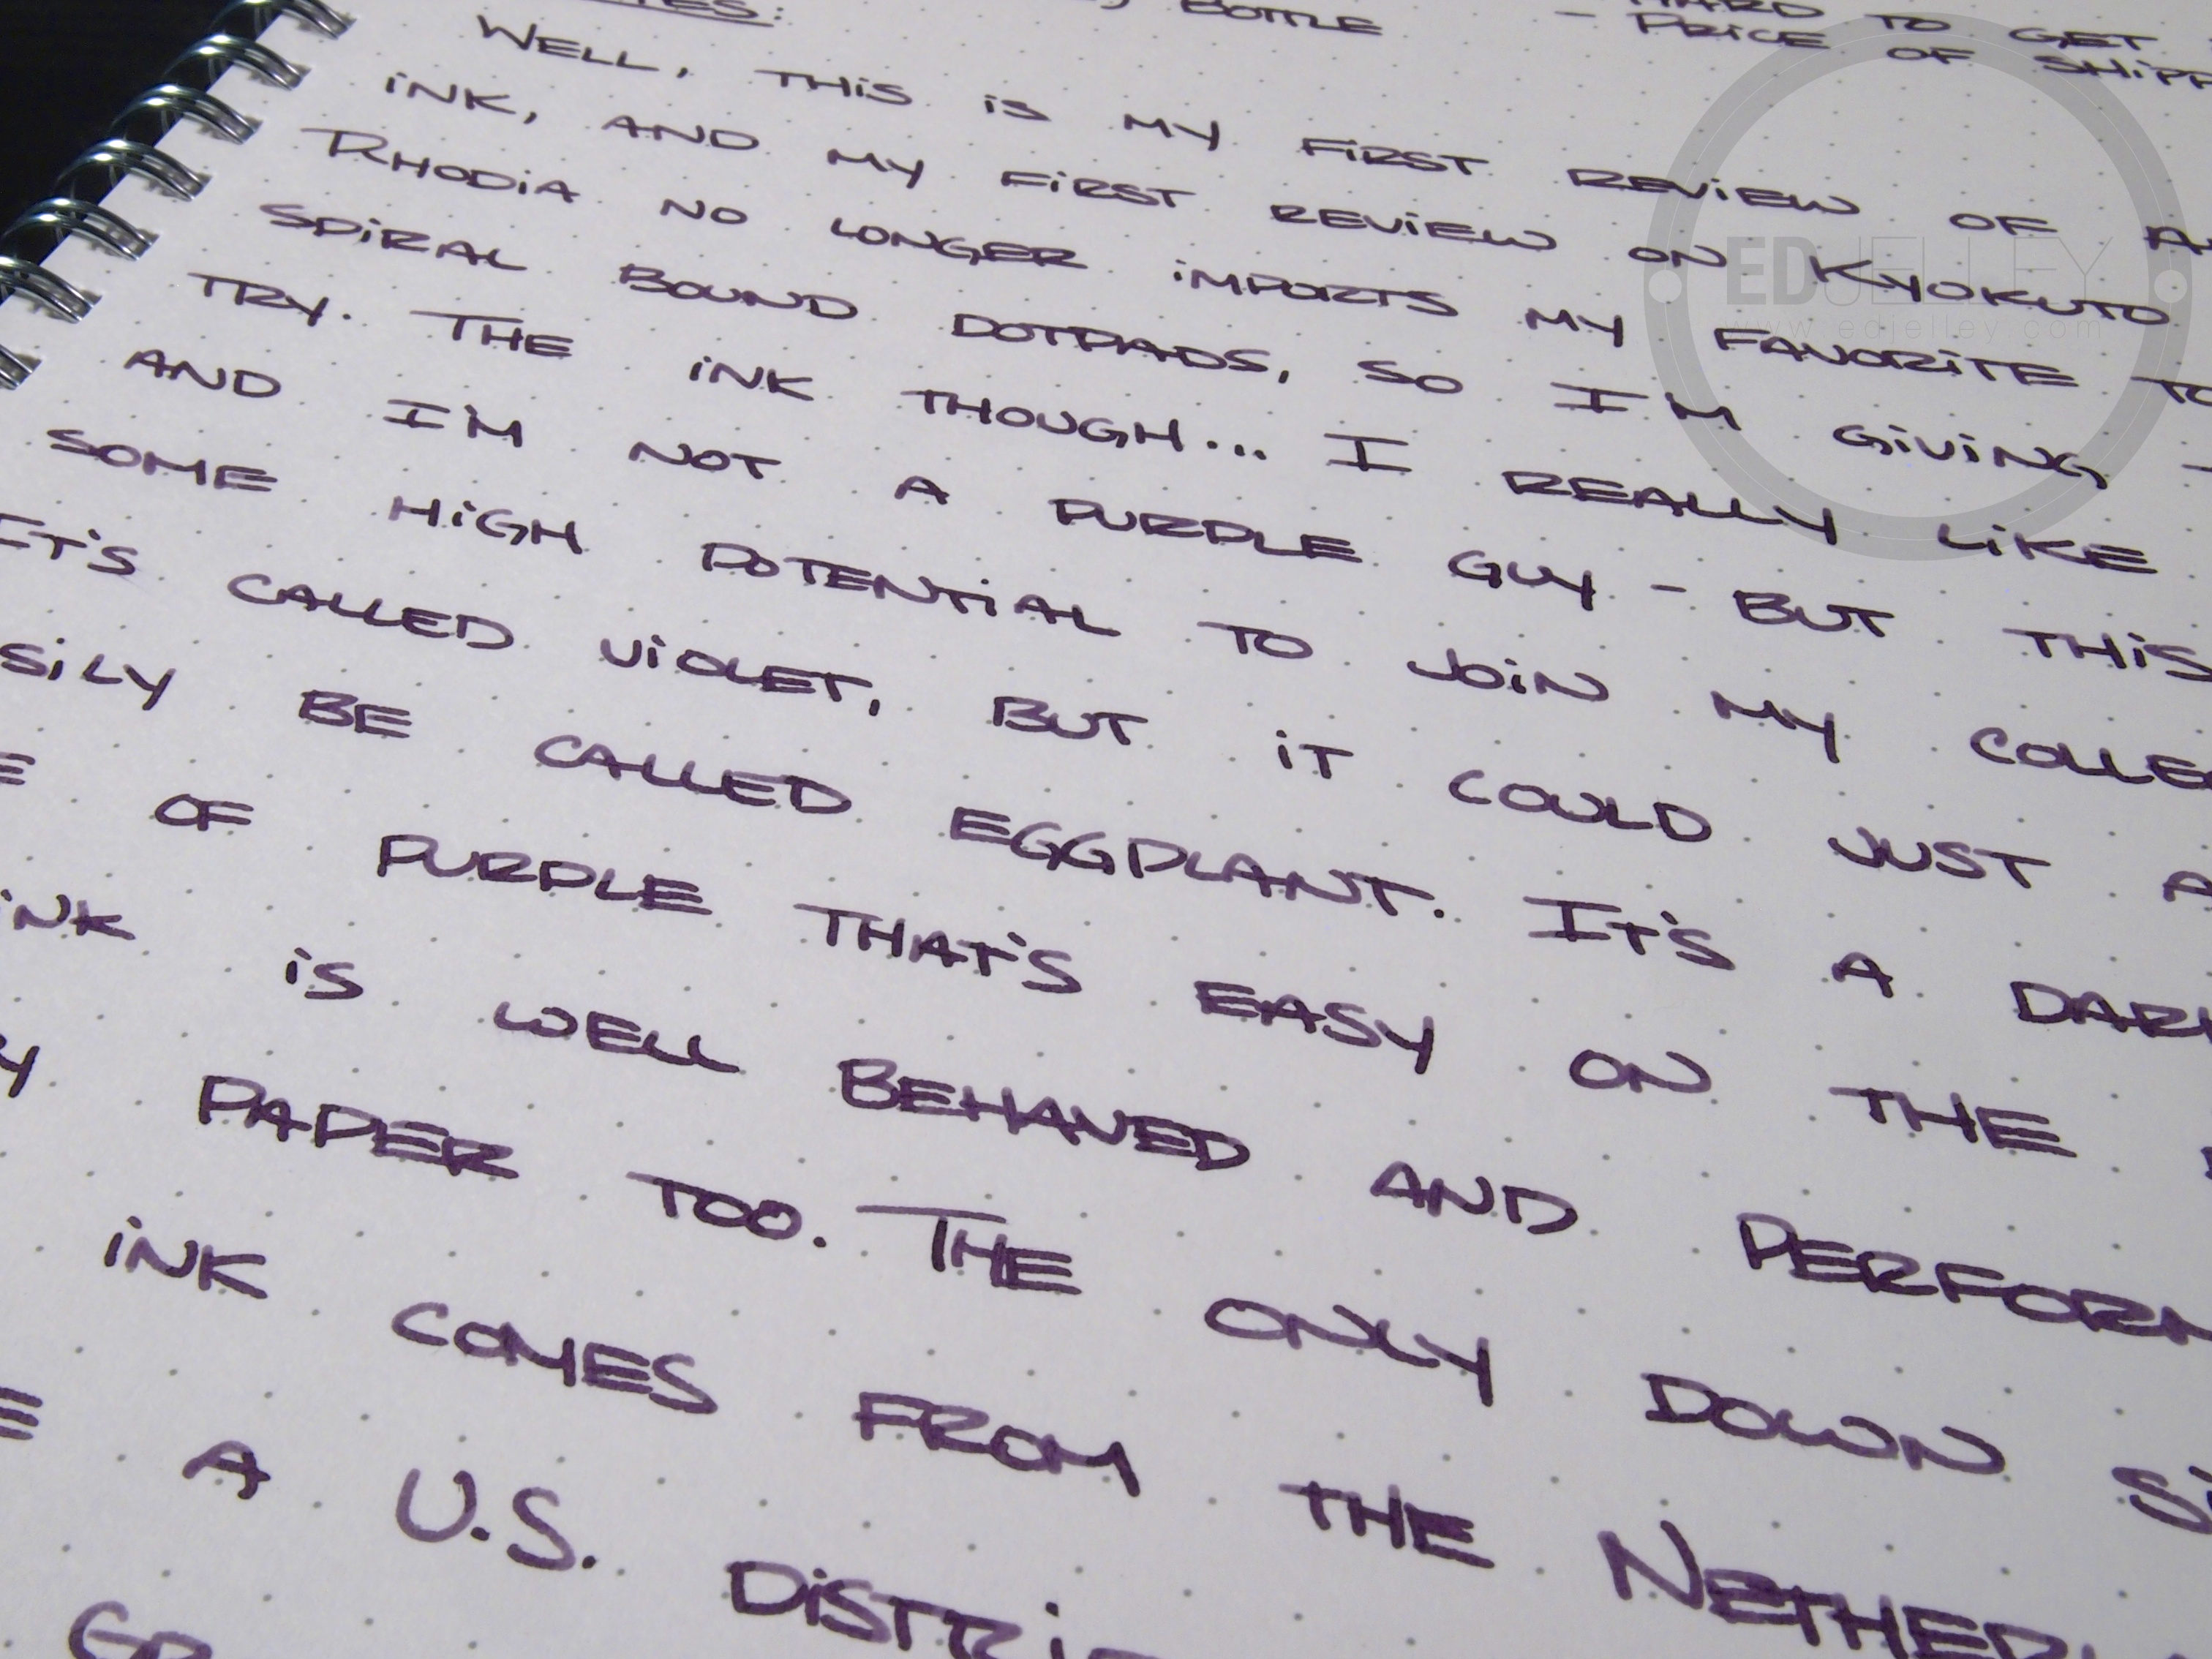 BOTTLE - HARD TO GET
- PRICE OF
WELL, THIS IS MY FIRST REVIEW OF
INK, AND MY FIRST REVIEW ON KYOKUTO
RHODIA NO LONGER IMPORTS MY FAVORITE
SPIRAL BOUND DOTPADS, SO I'M GIVING
TRY. THE INK THOUGH... I REALLY LIKE
AND I'M NOT A PURPLE GUY - BUT THIS
SOME HIGH POTENTIAL TO JOIN MY
IT'S CALLED VIOLET, BUT IT COULD JUST
BE CALLED EGGPLANT. IT'S A
OF PURPLE THAT'S EASY ON THE
INK IS WELL BEHAVED AND
PAPER TOO. THE ONLY DOWN
INK COMES FROM THE
A U.S.
EDJELLEY
www.edjelley.com